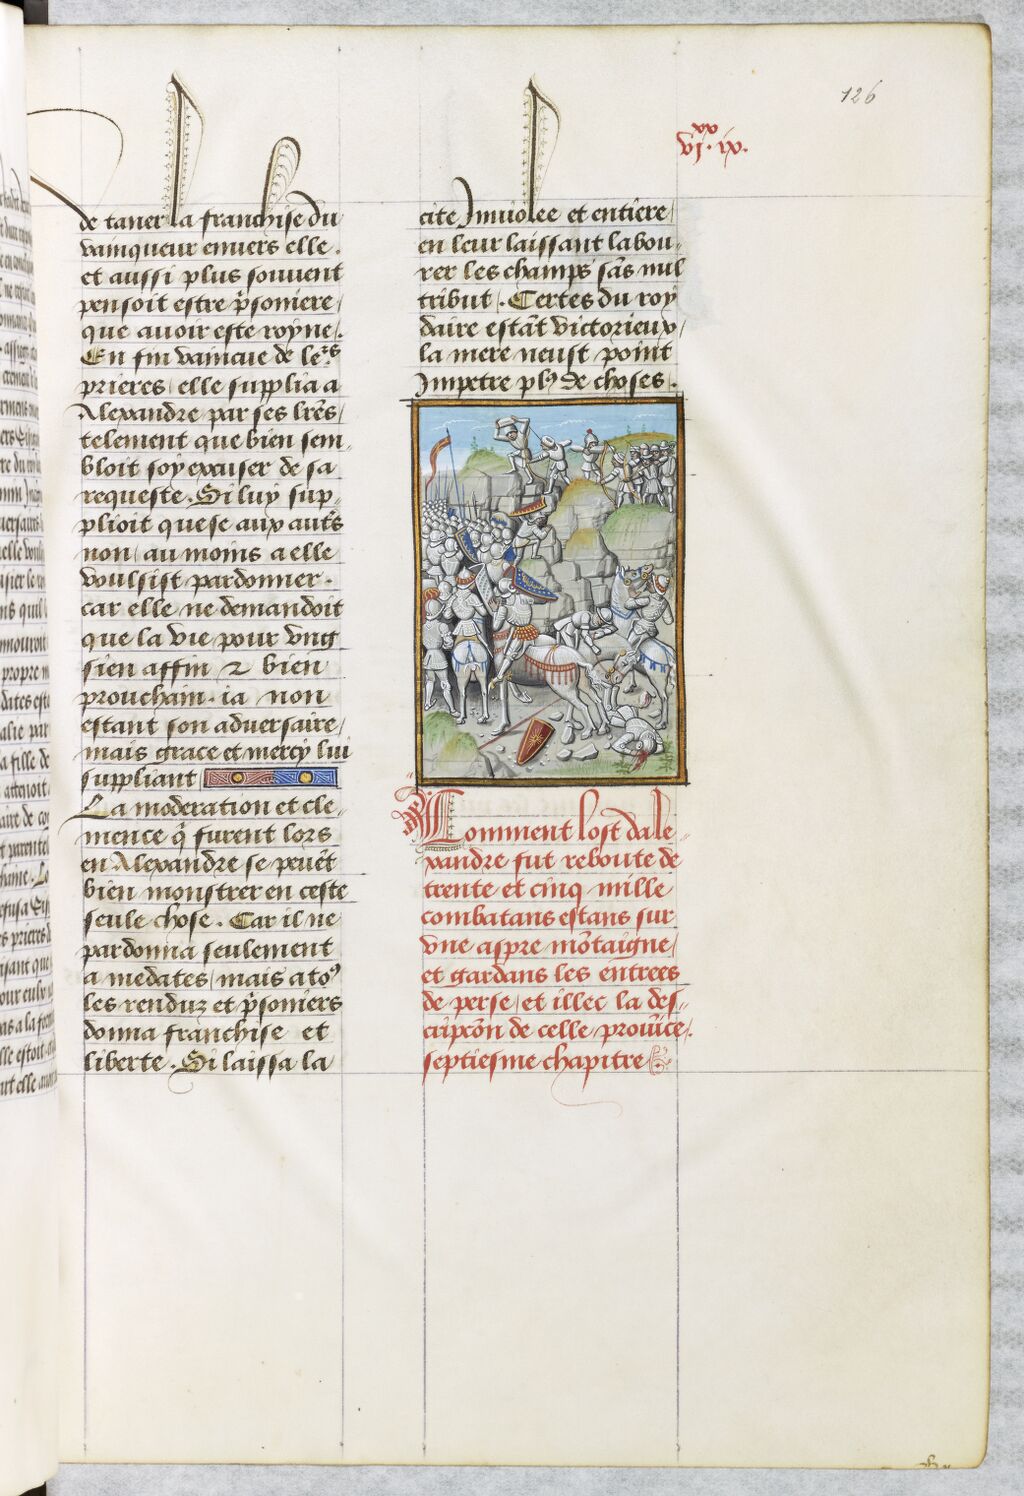 126
xx
vj. ix.
de taner la franchise du
vainqueur enuers elle.
et aussi plus souuent
pensoit estre p̃soniere/
que auoir este royne/.
En fin vaincue de le.rs
prieres/ elle supplia a
Alexandre par ses lr̃es/
telement que bien sem-
bloit soy excuser de sa
requeste. Si luy sup-
plioit que se aux aut̃s
non/ au moins a elle
voulsist pardonner.
car elle ne demandoit
que la vie pour vng
sien affin ⁊ bien
prouchain. ia non
estant son aduersaire/
mais grace et mercy lui
suppliant
La moderation et cle-
mence q̃ furent lors
en Alexandre se peuẽt
bien monstrer en ceste
seule chose. Car il ne
pardonna seulement
a medates/ mais a toꝰ
les renduz et p̃soniers
donna franchise et
liberte. Si laissa la
cite Inuiolee et entiere/
en leur laissant labou-
rer les champs sãs nul
tribut/. Certes du roy
daire estãt victorieux/
la mere neust point
Impetre plꝰ de choses.
Comment lost dale-
xandre fut reboute de
trente et cinq mille
combatans estans sur
vne aspre mõtaigne/
et gardans les entrees
de perse/ et illec la des-
cripcõn de celle prouĩce.
septiesme chapitre